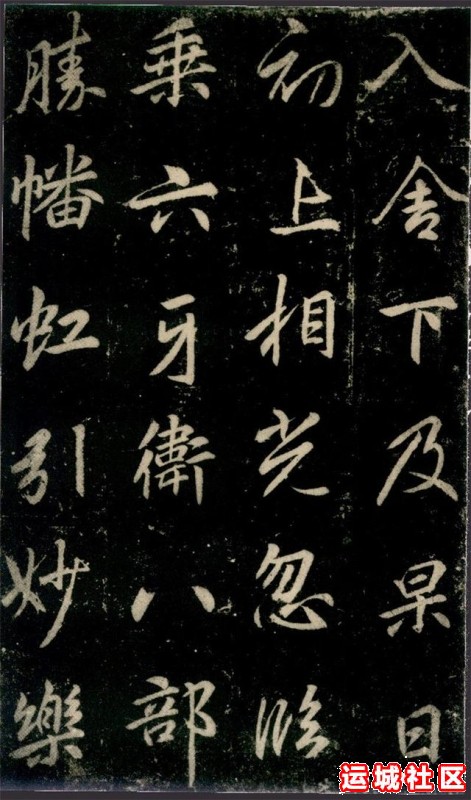 入舍下及杲日
初上相光忽臨
乘六牙衛八部
勝幡虹引妙樂
运城社区